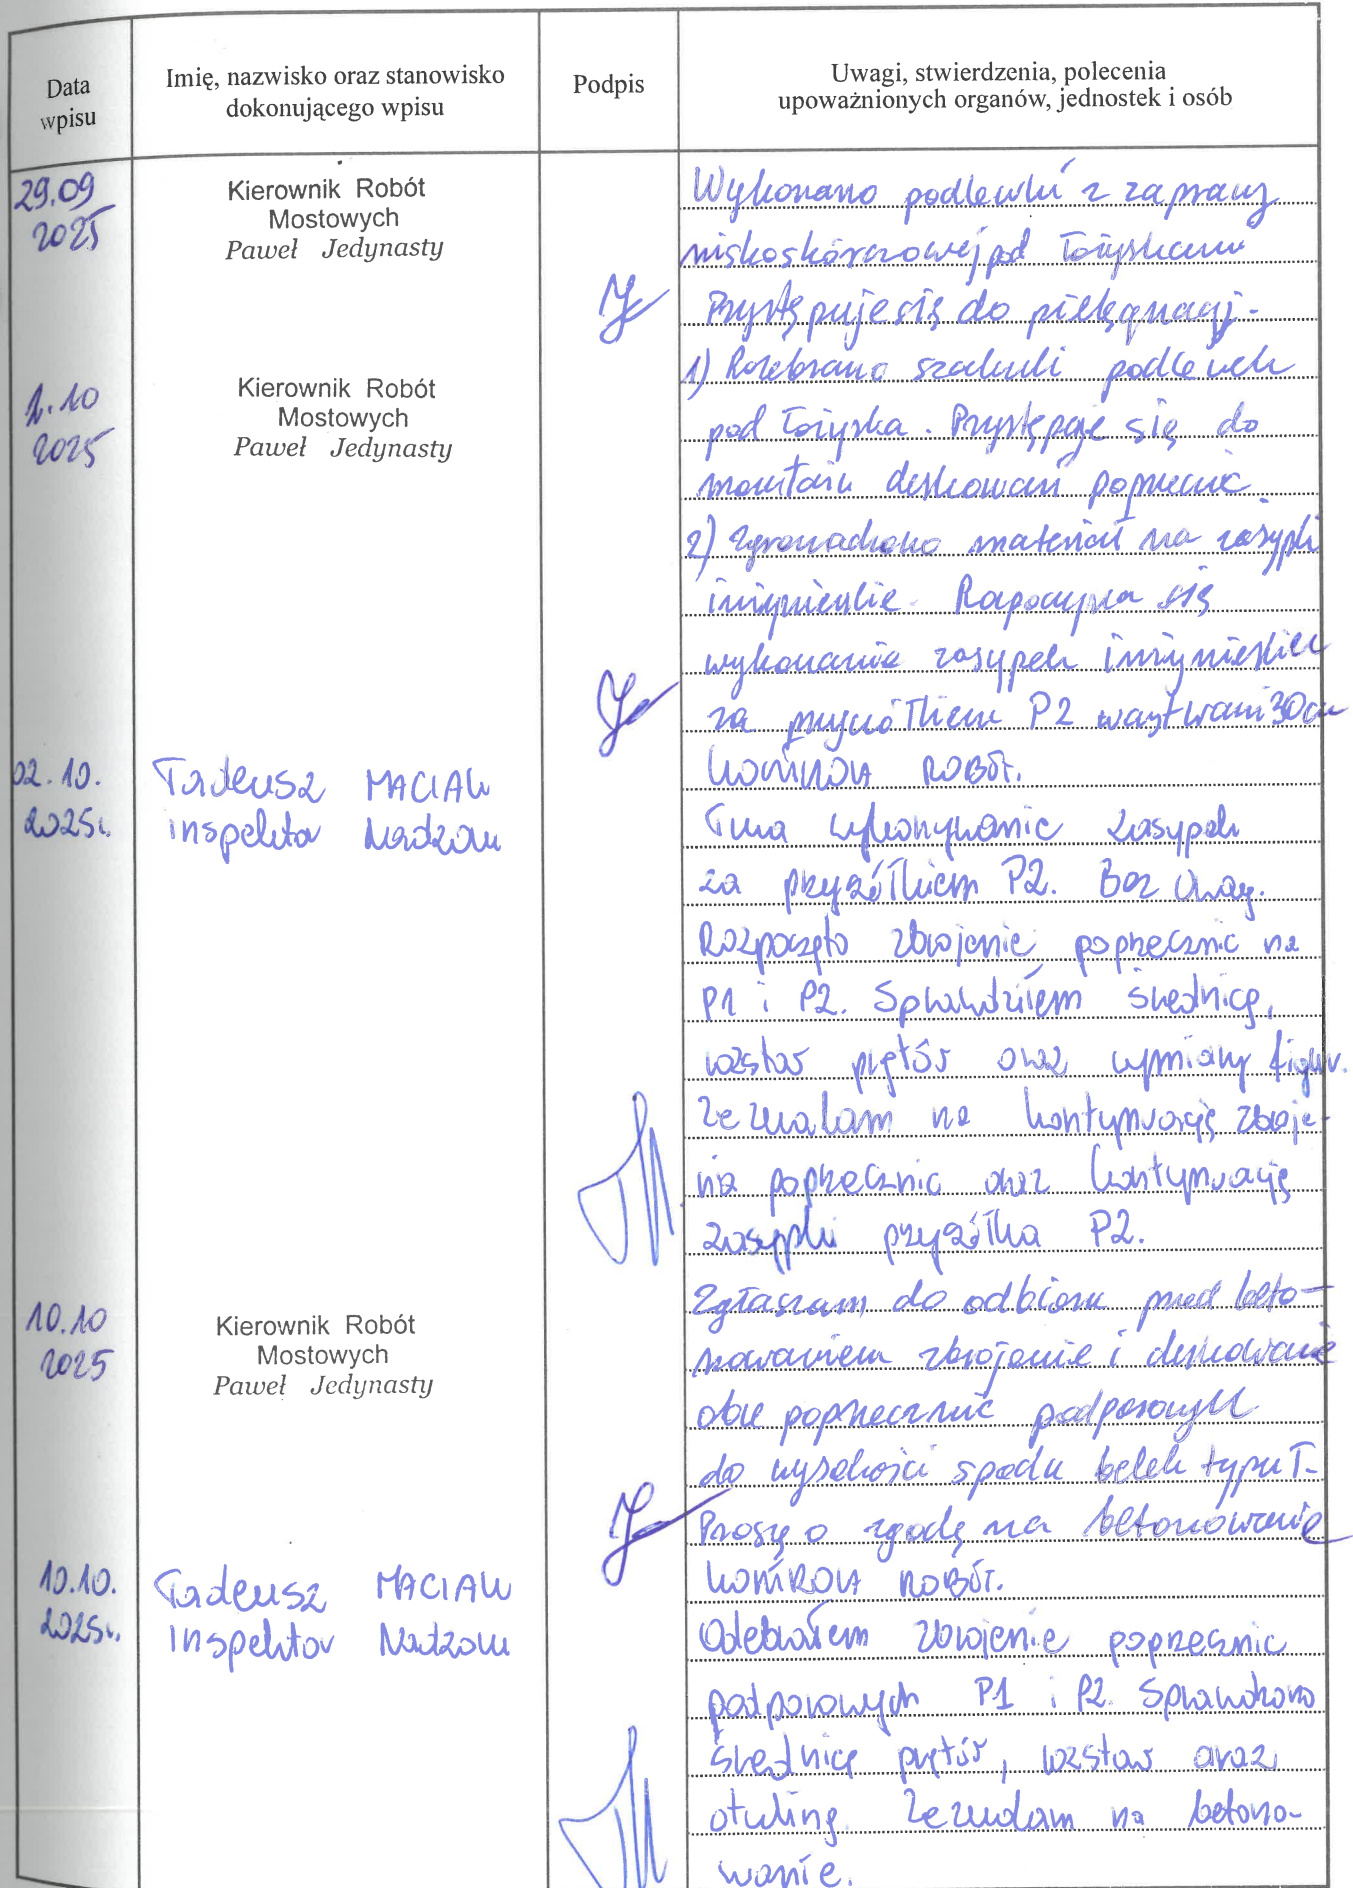 Data
wpisu
Imię, nazwisko oraz stanowisko
dokonującego wpisu
Podpis
Uwagi, stwierdzenia, polecenia
upoważnionych organów, jednostek i osób
29.09
2025
Kierownik Robót
Mostowych
Paweł Jedynasty
Wykonano podlewki z zaprawy
niskoskórczowej pod łożyskami
Przystępuje się do pielęgnacji.
1.10
2025
Kierownik Robót
Mostowych
Paweł Jedynasty
1) Rozebrano szalunki podlewek
pod łożyska. Przystępuje się do
montażu deskowań poprzecznic.
2) Zgromadzono materiał na zasypki
inżynierskie. Rozpoczyna się
wykonanie zasypek inżynierskich
za przyczółkiem P2 warstwami 30cm
02.10.
2025r.
Tadeusz MACIAK
inspektor Nadzoru
KONTROLA ROBÓT.
Trwa wykonywanie zasypek
za przyczółkiem P2. Bez uwag.
Rozpoczęto zbrojenie poprzecznic na
P1 i P2. Sprawdziłem średnicę,
rozstaw prętów oraz wymiary figur.
Zezwalam na kontynuację zbroje-
nia poprzecznic oraz kontynuację
zasypki przyczółka P2.
10.10
2025
Kierownik Robót
Mostowych
Paweł Jedynasty
Zgłaszam do odbioru przed beto-
nowaniem zbrojenie i deskowanie
obu poprzecznic podporowych
do wysokości spodu belek typu T.
Proszę o zgodę na betonowanie
10.10.
2025r.
Tadeusz MACIAK
Inspektor Nadzoru
KONTROLA ROBÓT.
Odebrałem zbrojenie poprzecznic
podporowych P1 i P2. Sprawdzono
średnicę prętów, rozstaw oraz
otulinę. Zezwalam na betono-
wanie.